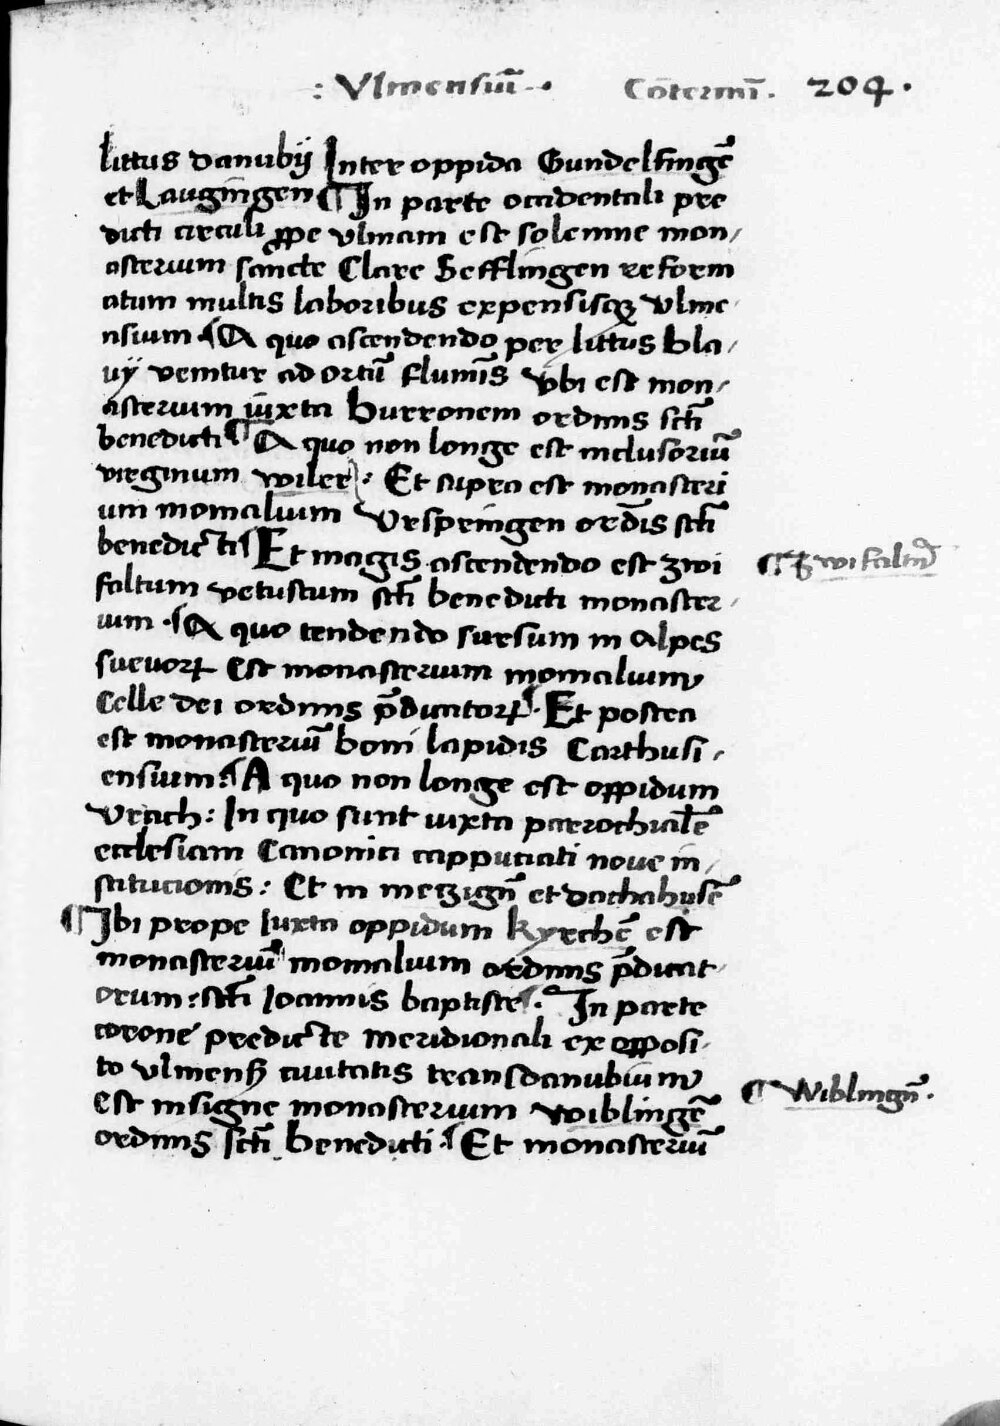 : Vlmensiū · Cōtermī. 204.
littus danubij Inter oppida Gundelfingē
et Laugingen ¶ In parte occidentali pre
dicti circuli ꝓpe vlmam est solemne mon/
asterium sancte Clare Sefflingen reform
atum multis laboribus expensisqꝫ vlme/
nsium · ¶ A quo ascendendo per littus bla/
uÿ venitur ad ortū flumīs vbi est mon/
asterium iuxta burronem ordinis sc̄ti
benedicti ¶ A quo non longe est inclusoriū
virginum wiler : Et supra est monasteri
um monialium Vrspringen ord̄is sc̄ti
benedicti ¶ Et magis ascendendo est zwi
faltum vetustum sc̄ti benedicti monaster/
¶ Zwifaltn̄
ium · ¶ A quo tendendo sursum in alpes
sueuoꝝ Est monasterium monialium
Celle dei ordinis p̄dicatoꝝ · ¶ Et postea
est monasteriū boni lapidis Carthusi/
ensium : ¶ A quo non longe est oppidum
Vrach : In quo sunt iuxta parrochialē
ecclesiam Canonici capputiati noue in/
stitucionis : Et in metzign̄ et dachahusē
¶ Ibi prope Iuxta oppidum kyrchē est
monasteriū monialium ordinis p̄dicat/
orum : sc̄ti Ioannis baptiste · ¶ In parte
corone predicte meridionali ex opposi/
to vlmenß ciuitatis transdanubium
¶ Wiblingn̄.
Est insigne monasterium wiblingē
ordinis sc̄ti benedicti · ¶ Et monasteriū